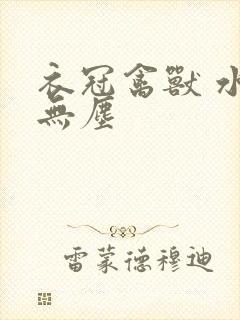 衣冠禽獸 水
無塵
雷蒙德穆迪